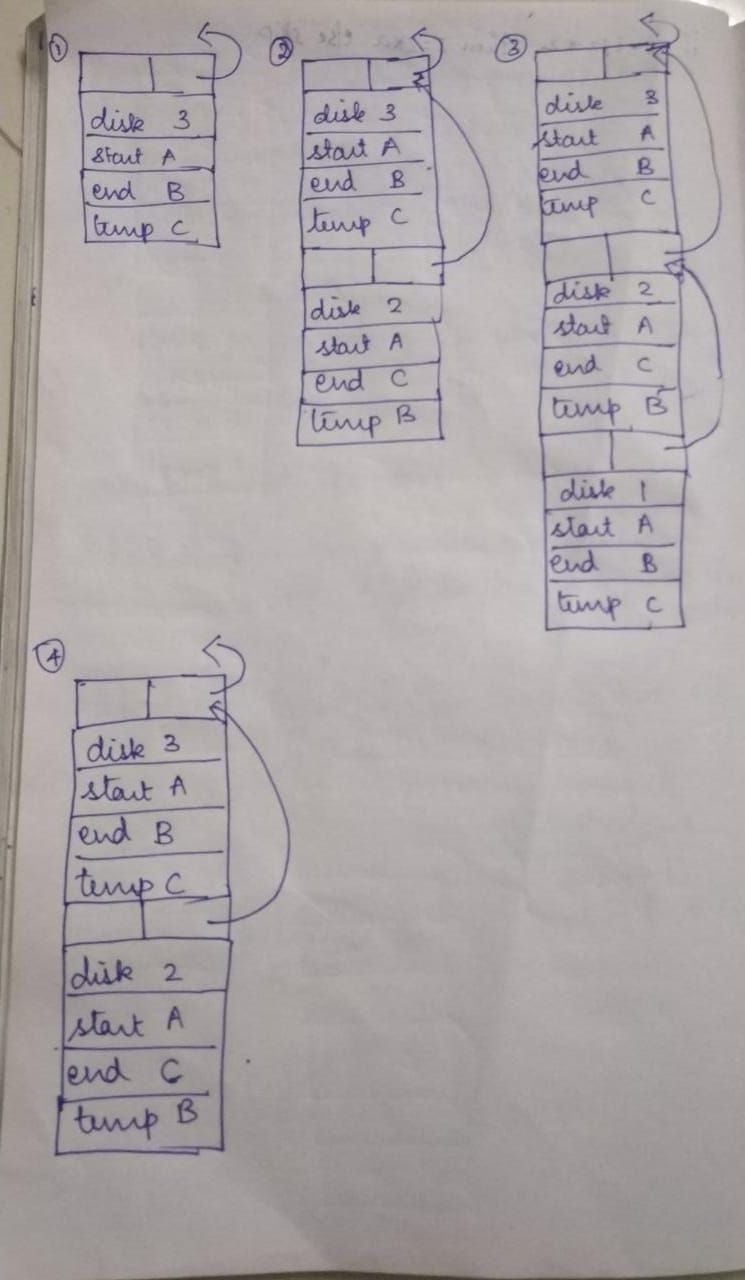 1
disk 3
start A
end B
temp C
2
disk 3
start A
end B
temp C
disk 2
start A
end C
temp B
3
disk 3
start A
end B
temp C
disk 2
start A
end C
temp B
disk 1
start A
end B
temp C
4
disk 3
start A
end B
temp C
disk 2
start A
end C
temp B